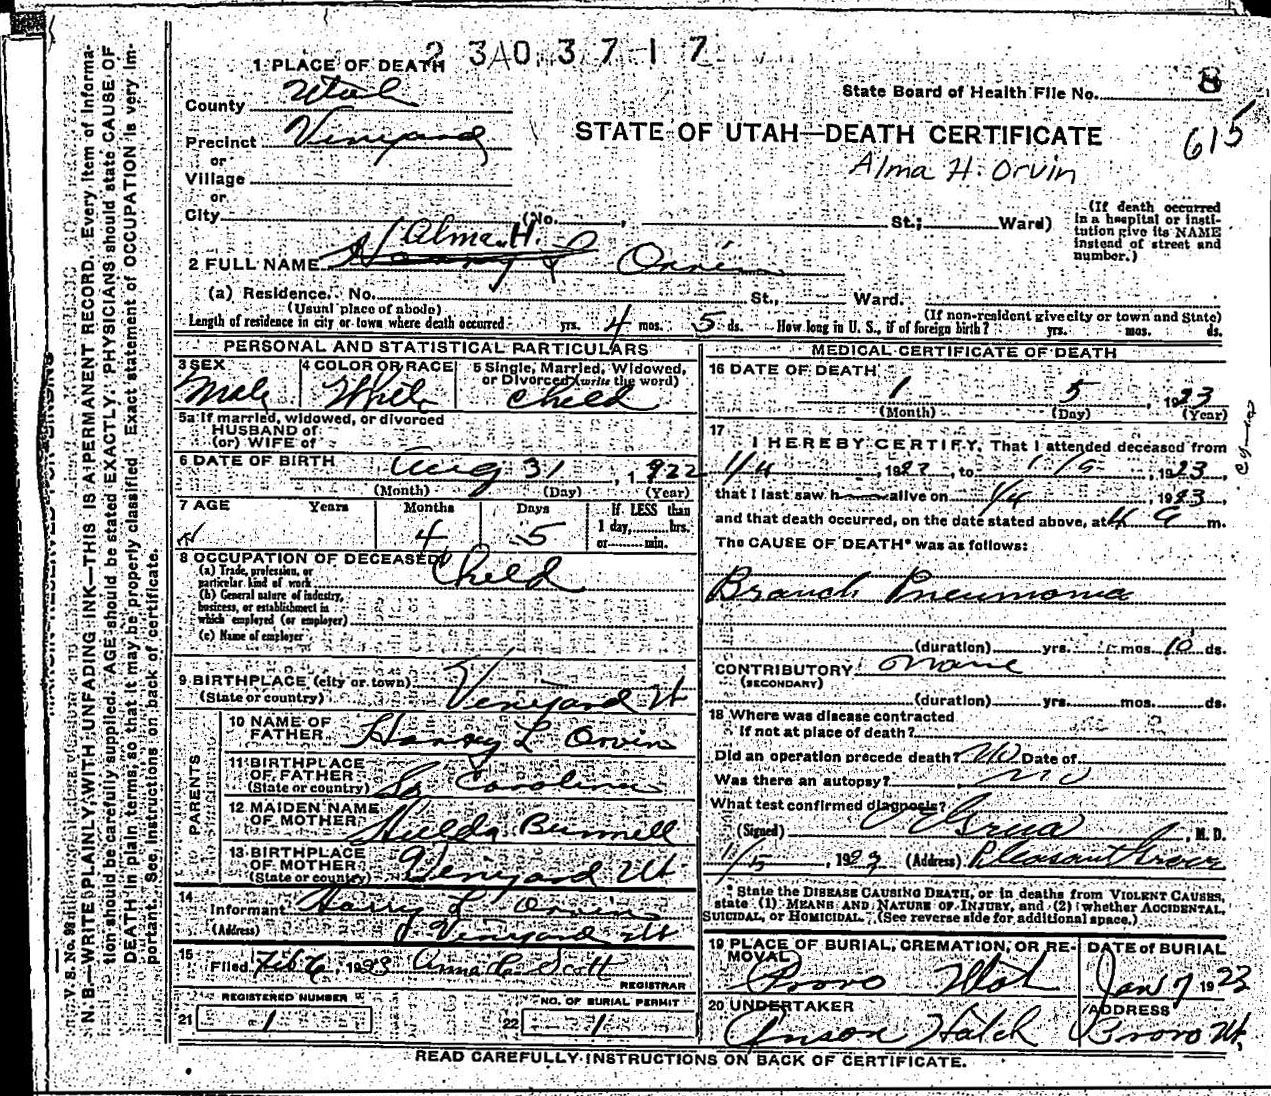 23A03717
1 PLACE OF DEATH
State Board of Health File No. 8
County Utah
615
STATE OF UTAH—DEATH CERTIFICATE
Precinct Vineyard
or
Village
Alma H. Orvin
or
City (No. , St.; Ward)
(If death occurred in a hospital or institution give its NAME instead of street and number.)
Alma H.
2 FULL NAME Harry L Orvin
(a) Residence. No. St., Ward.
(Usual place of abode) (If non-resident give city or town and State)
Length of residence in city or town where death occurred yrs. 4 mos. 5 ds. How long in U. S., if of foreign birth? yrs. mos. ds.
PERSONAL AND STATISTICAL PARTICULARS
3 SEX 4 COLOR OR RACE 5 Single, Married, Widowed, or Divorced (write the word)
Male White Child
5a If married, widowed, or divorced
HUSBAND of
(or) WIFE of
6 DATE OF BIRTH Aug 31, 1922
(Month) (Day) (Year)
7 AGE Years Months Days If LESS than
4 5 1 day, hrs.
or min.
8 OCCUPATION OF DECEASED
(a) Trade, profession, or particular kind of work Child
(b) General nature of industry, business, or establishment in which employed (or employer)
(c) Name of employer
9 BIRTHPLACE (city or town)
(State or country) Vineyard Ut
PARENTS
10 NAME OF FATHER Harry L Orvin
11 BIRTHPLACE OF FATHER
(State or country) So Carolina
12 MAIDEN NAME OF MOTHER Hulda Bunnell
13 BIRTHPLACE OF MOTHER
(State or country) Vineyard Ut
14
Informant Harry L Orvin
(Address) Vineyard Ut
15
Filed Feb 6 1923 Anna C. Scott
REGISTRAR
REGISTERED NUMBER NO. OF BURIAL PERMIT
21 1 22 1
MEDICAL CERTIFICATE OF DEATH
16 DATE OF DEATH
1 5, 1923
(Month) (Day) (Year)
17
I HEREBY CERTIFY, That I attended deceased from
1/4, 1923, to 1/5, 1923,
that I last saw h alive on 1/4, 1923,
and that death occurred, on the date stated above, at 4 a m.
The CAUSE OF DEATH* was as follows:
Bronch Pneumonia
(duration) yrs. mos. 10 ds.
CONTRIBUTORY none
(SECONDARY)
(duration) yrs. mos. ds.
18 Where was disease contracted
if not at place of death?
Did an operation precede death? No Date of
Was there an autopsy? No
What test confirmed diagnosis?
(Signed) Grua, M. D.
1/5, 1923 (Address) Pleasant Grove
* State the DISEASE CAUSING DEATH, or in deaths from VIOLENT CAUSES,
state (1) MEANS AND NATURE OF INJURY, and (2) whether ACCIDENTAL,
SUICIDAL, or HOMICIDAL. (See reverse side for additional space.)
19 PLACE OF BURIAL, CREMATION, OR REMOVAL DATE of BURIAL
Provo Utah Jan 7 1923
20 UNDERTAKER ADDRESS
Anson Hatch Provo Ut.
READ CAREFULLY INSTRUCTIONS ON BACK OF CERTIFICATE.
N. B.—WRITE PLAINLY, WITH UNFADING INK—THIS IS A PERMANENT RECORD. Every item of information should be carefully supplied. AGE should be stated EXACTLY. PHYSICIANS should state CAUSE OF DEATH in plain terms, so that it may be properly classified. Exact statement of OCCUPATION is very important. See instructions on back of certificate.